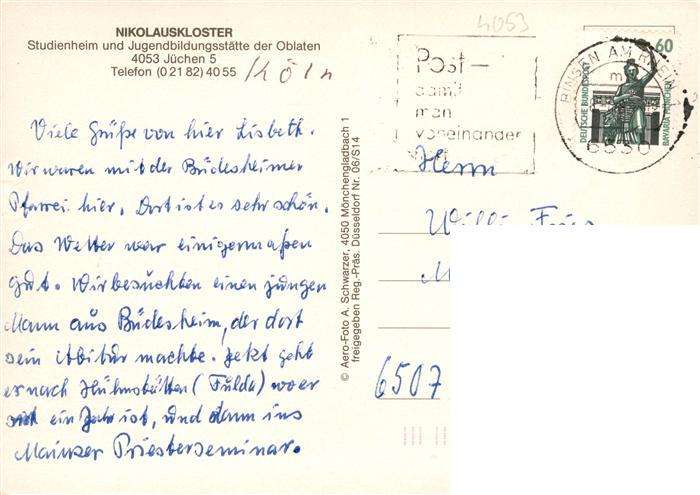 NIKOLAUSKLOSTER
Studienheim und Jugendbildungsstätte der Oblaten
4053 Jüchen 5
Telefon (0 21 82) 40 55
Köln
Viele Grüße von hier Lisbeth.
Wir waren mit der Büdesheimer
Pfarrei hier. Dort ist es sehr schön.
Das Wetter war einigermaßen
gut. Wir besuchten einen jungen
Mann aus Büdesheim, der dort
sein Abitur machte. Jetzt geht
er nach (Fulda) wo er
ein Jahr ist, und dann ins
Mainzer Priesterseminar.
© Aero-Foto A. Schwarzer, 4050 Mönchengladbach 1
freigegeben Reg.-Präs. Düsseldorf Nr. 06/S14
4053
Post—
damit
man
voneinander
BINGEN AM RHEIN
6530
60
DEUTSCHE BUNDESPOST
BAVARIA MÜNCHEN
Herrn
Willi
6507